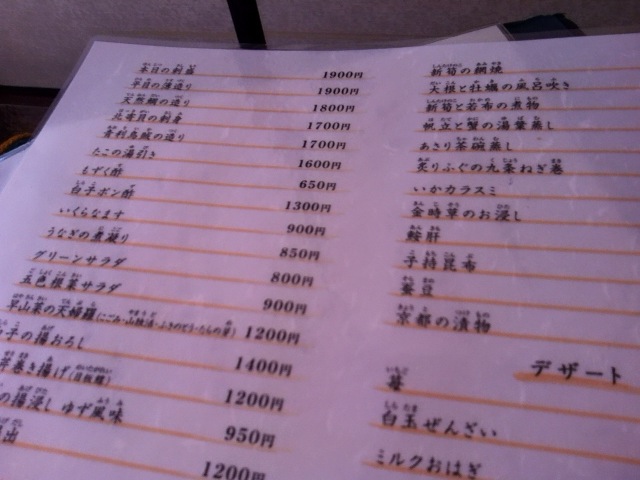 本日の刺盛 1900円
平目の薄造り 1900円
天然鯛の造り 1800円
北寄貝の刺身 1700円
青利烏賊の造り 1700円
たこの湯引き 1600円
もずく酢 650円
白子ポン酢 1300円
いくらなます 900円
うなぎの煮凝り 850円
グリーンサラダ 800円
五色根菜サラダ 900円
山菜の天婦羅(こごみ・山独活・ふきのとう・たらの芽) 1200円
子の揚おろし 1400円
巻き揚げ 1200円
の揚浸し ゆず風味 950円
出 1200円
新筍の網焼
大根と牡蠣の風呂吹き
新筍と若布の煮物
帆立と蟹の湯葉蒸し
あさり茶碗蒸し
炙りふぐの九条ねぎ巻
いかカラスミ
金時草のお浸し
鮟肝
子持昆布
蚕豆
京都の漬物
デザート
苺
白玉ぜんざい
ミルクおはぎ